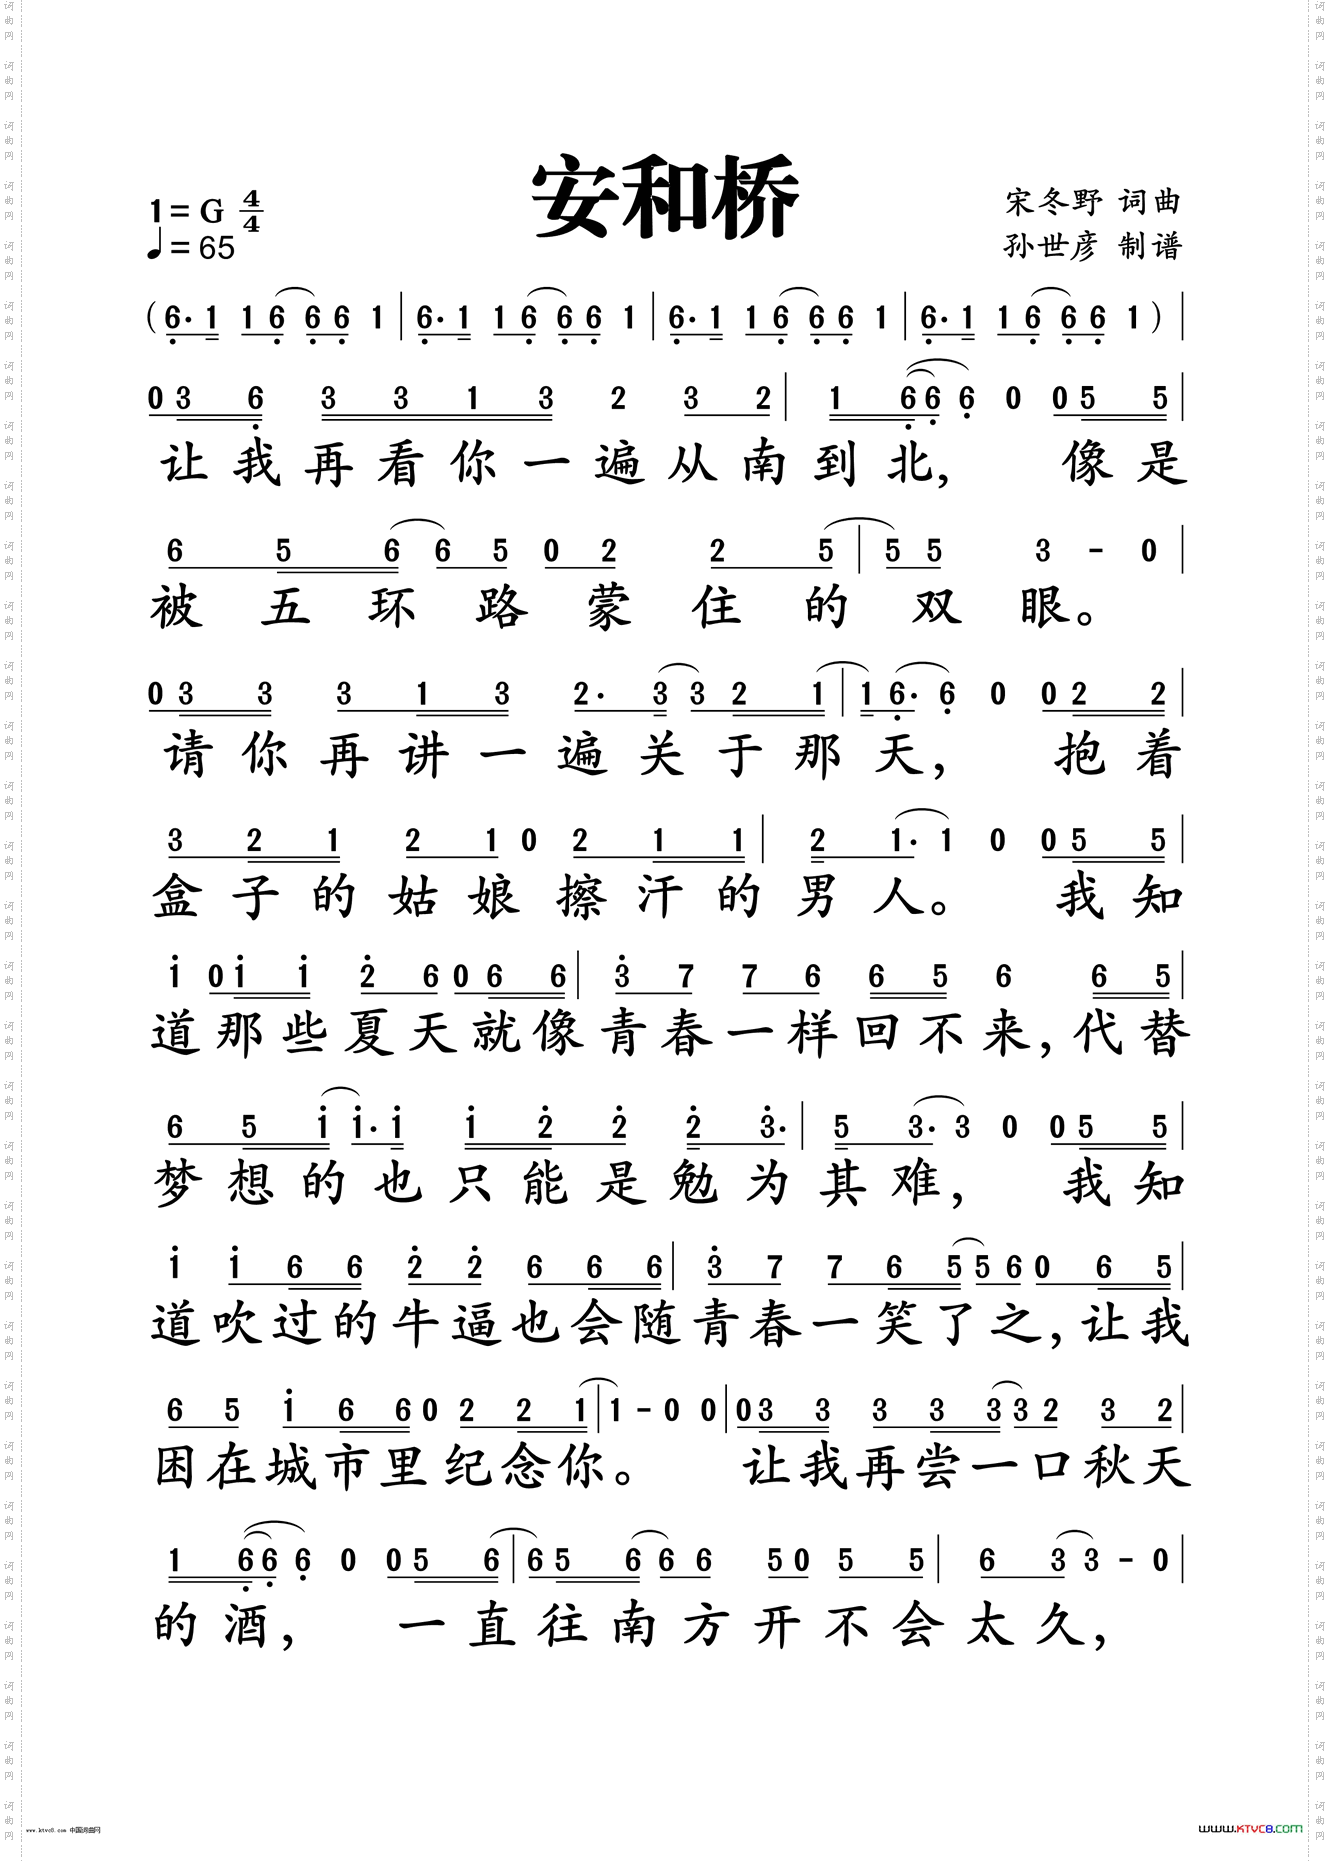 安和桥
1=G 4/4
♩=65
宋冬野 词曲
孙世彦 制谱
(6·1 16 66 1|6·1 16 66 1|6·1 16 66 1|6·1 16 66 1)|
03 6 3 3 1 3 2 3 2|1 66 6 0 05 5|
让我再看你一遍从南到北, 像是
6 5 6 6 5 0 2 2 5|5 5 3 - 0|
被五环路蒙住的双眼。
03 3 3 1 3 2· 3 3 2 1|1 6· 6 0 02 2|
请你再讲一遍关于那天, 抱着
3 2 1 2 1 0 2 1 1|2 1· 1 0 05 5|
盒子的姑娘擦汗的男人。 我知
i 0i i 2̇ 6 06 6|3̇ 7 7 6 6 5 6 6 5|
道那些夏天就像青春一样回不来,代替
6 5 i i· i i 2̇ 2̇ 2̇ 3̇·|5 3· 3 0 05 5|
梦想的也只能是勉为其难, 我知
i i 6 6 2̇ 2̇ 6 6 6|3̇ 7 7 6 5 5 6 0 6 5|
道吹过的牛逼也会随青春一笑了之,让我
6 5 i 6 6 0 2 2 1|1 - 0 0|03 3 3 3 3 3 2 3 2|
困在城市里纪念你。 让我再尝一口秋天
1 66 6 0 05 6|6 5 6 6 6 5 0 5 5|6 3 3 - 0|
的酒, 一直往南方开不会太久,
www.ktvc8.com 中国词曲网
www.KTVC8.com